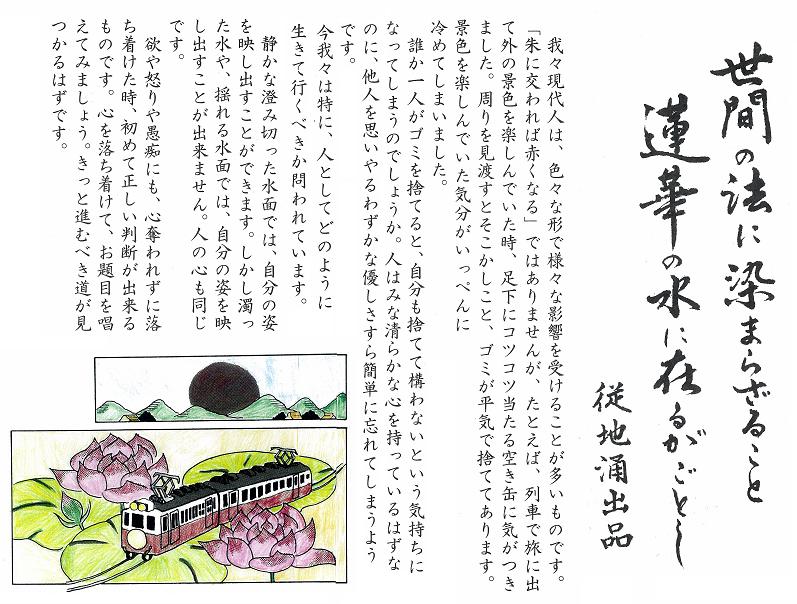 世間の法に染まらざること
蓮華の水に在るがごとし
従地涌出品
我々現代人は、色々な形で様々な影響を受けることが多いものです。
「朱に交われば赤くなる」ではありませんが、たとえば、列車で旅に出
て外の景色を楽しんでいた時、足下にコツコツ当たる空き缶に気がつき
ました。周りを見渡すとそこかしこと、ゴミが平気で捨ててあります。
景色を楽しんでいた気分がいっぺんに
冷めてしまいました。
誰か一人がゴミを捨てると、自分も捨てて構わないという気持ちに
なってしまうのでしょうか。人はみな清らかな心を持っているはずな
のに、他人を思いやるわずかな優しさすら簡単に忘れてしまうよう
です。
今我々は特に、人としてどのように
生きて行くべきか問われています。
静かな澄み切った水面では、自分の姿
を映し出すことができます。しかし濁っ
た水や、揺れる水面では、自分の姿を映
し出すことが出来ません。人の心も同じ
です。
欲や怒りや愚痴にも、心奪われずに落
ち着けた時、初めて正しい判断が出来る
ものです。心を落ち着けて、お題目を唱
えてみましょう。きっと進むべき道が見
つかるはずです。